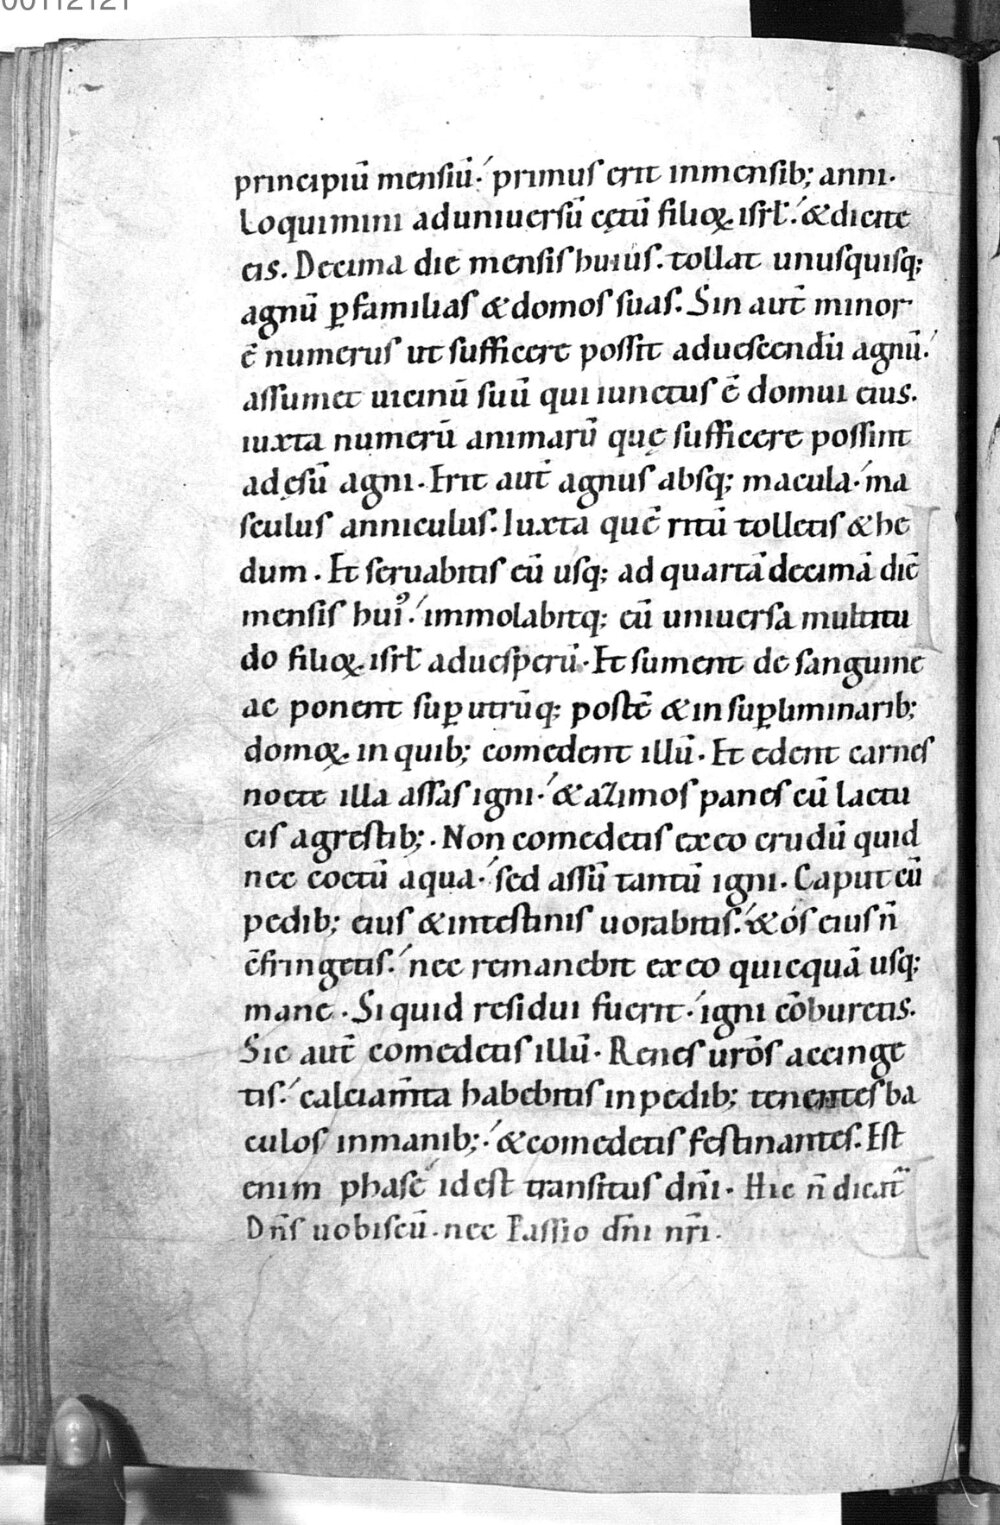 00112121
principiũ mensiũ. primus erit inmensib; anni.
Loquimini aduniuersũ cętũ filioꝝ isrł. &dicite
eis. Decima die mensis huius. tollat unusquisq;
agnũ ꝑfamilias &domos suas. Sin aut̃ minor
ẽ numerus ut sufficere possit aduescendũ agnũ.
assumet uicinũ suũ qui iunctus ẽ domui eius.
iuxta numerũ animarũ quę sufficere possint
adęsũ agni. Erit aut̃ agnus absq; macula. ma
sculus anniculus. Iuxta quẽ ritũ tolletis &he
dum. Et seruabitis eũ usq; ad quartã decimã diẽ
mensis huiꝰ. immolabitq; eũ uniuersa multitu
do filioꝝ isrł aduesperũ. Et sument de sanguine
ac ponent suꝑ utrũq; postẽ &in suꝑliminarib;
domoꝝ in quib; comedent illũ. Et edent carnes
nocte illa assas igni. &azimos panes cũ lactu
cis agrestib;. Non comedetis ex eo crudũ quid
nec coctũ aqua. sed assũ tantũ igni. Caput cũ
pedib; eius &intestinis uorabitis. &ós eius ñ
c̃fringetis. nec remanebit ex eo quicquã usq;
mane. Si quid residui fuerit. igni cõburetis.
Sic aut̃ comedetis illũ. Renes ur̃os accinge
tis. calciam̃ta habebitis in pedib; tenentes ba
culos inmanib;. &comedetis festinantes. Est
enim phase id est transitus dñi. Hic ñ dicat̃
Dñs uobiscũ. nec Passio dñi nr̃i.